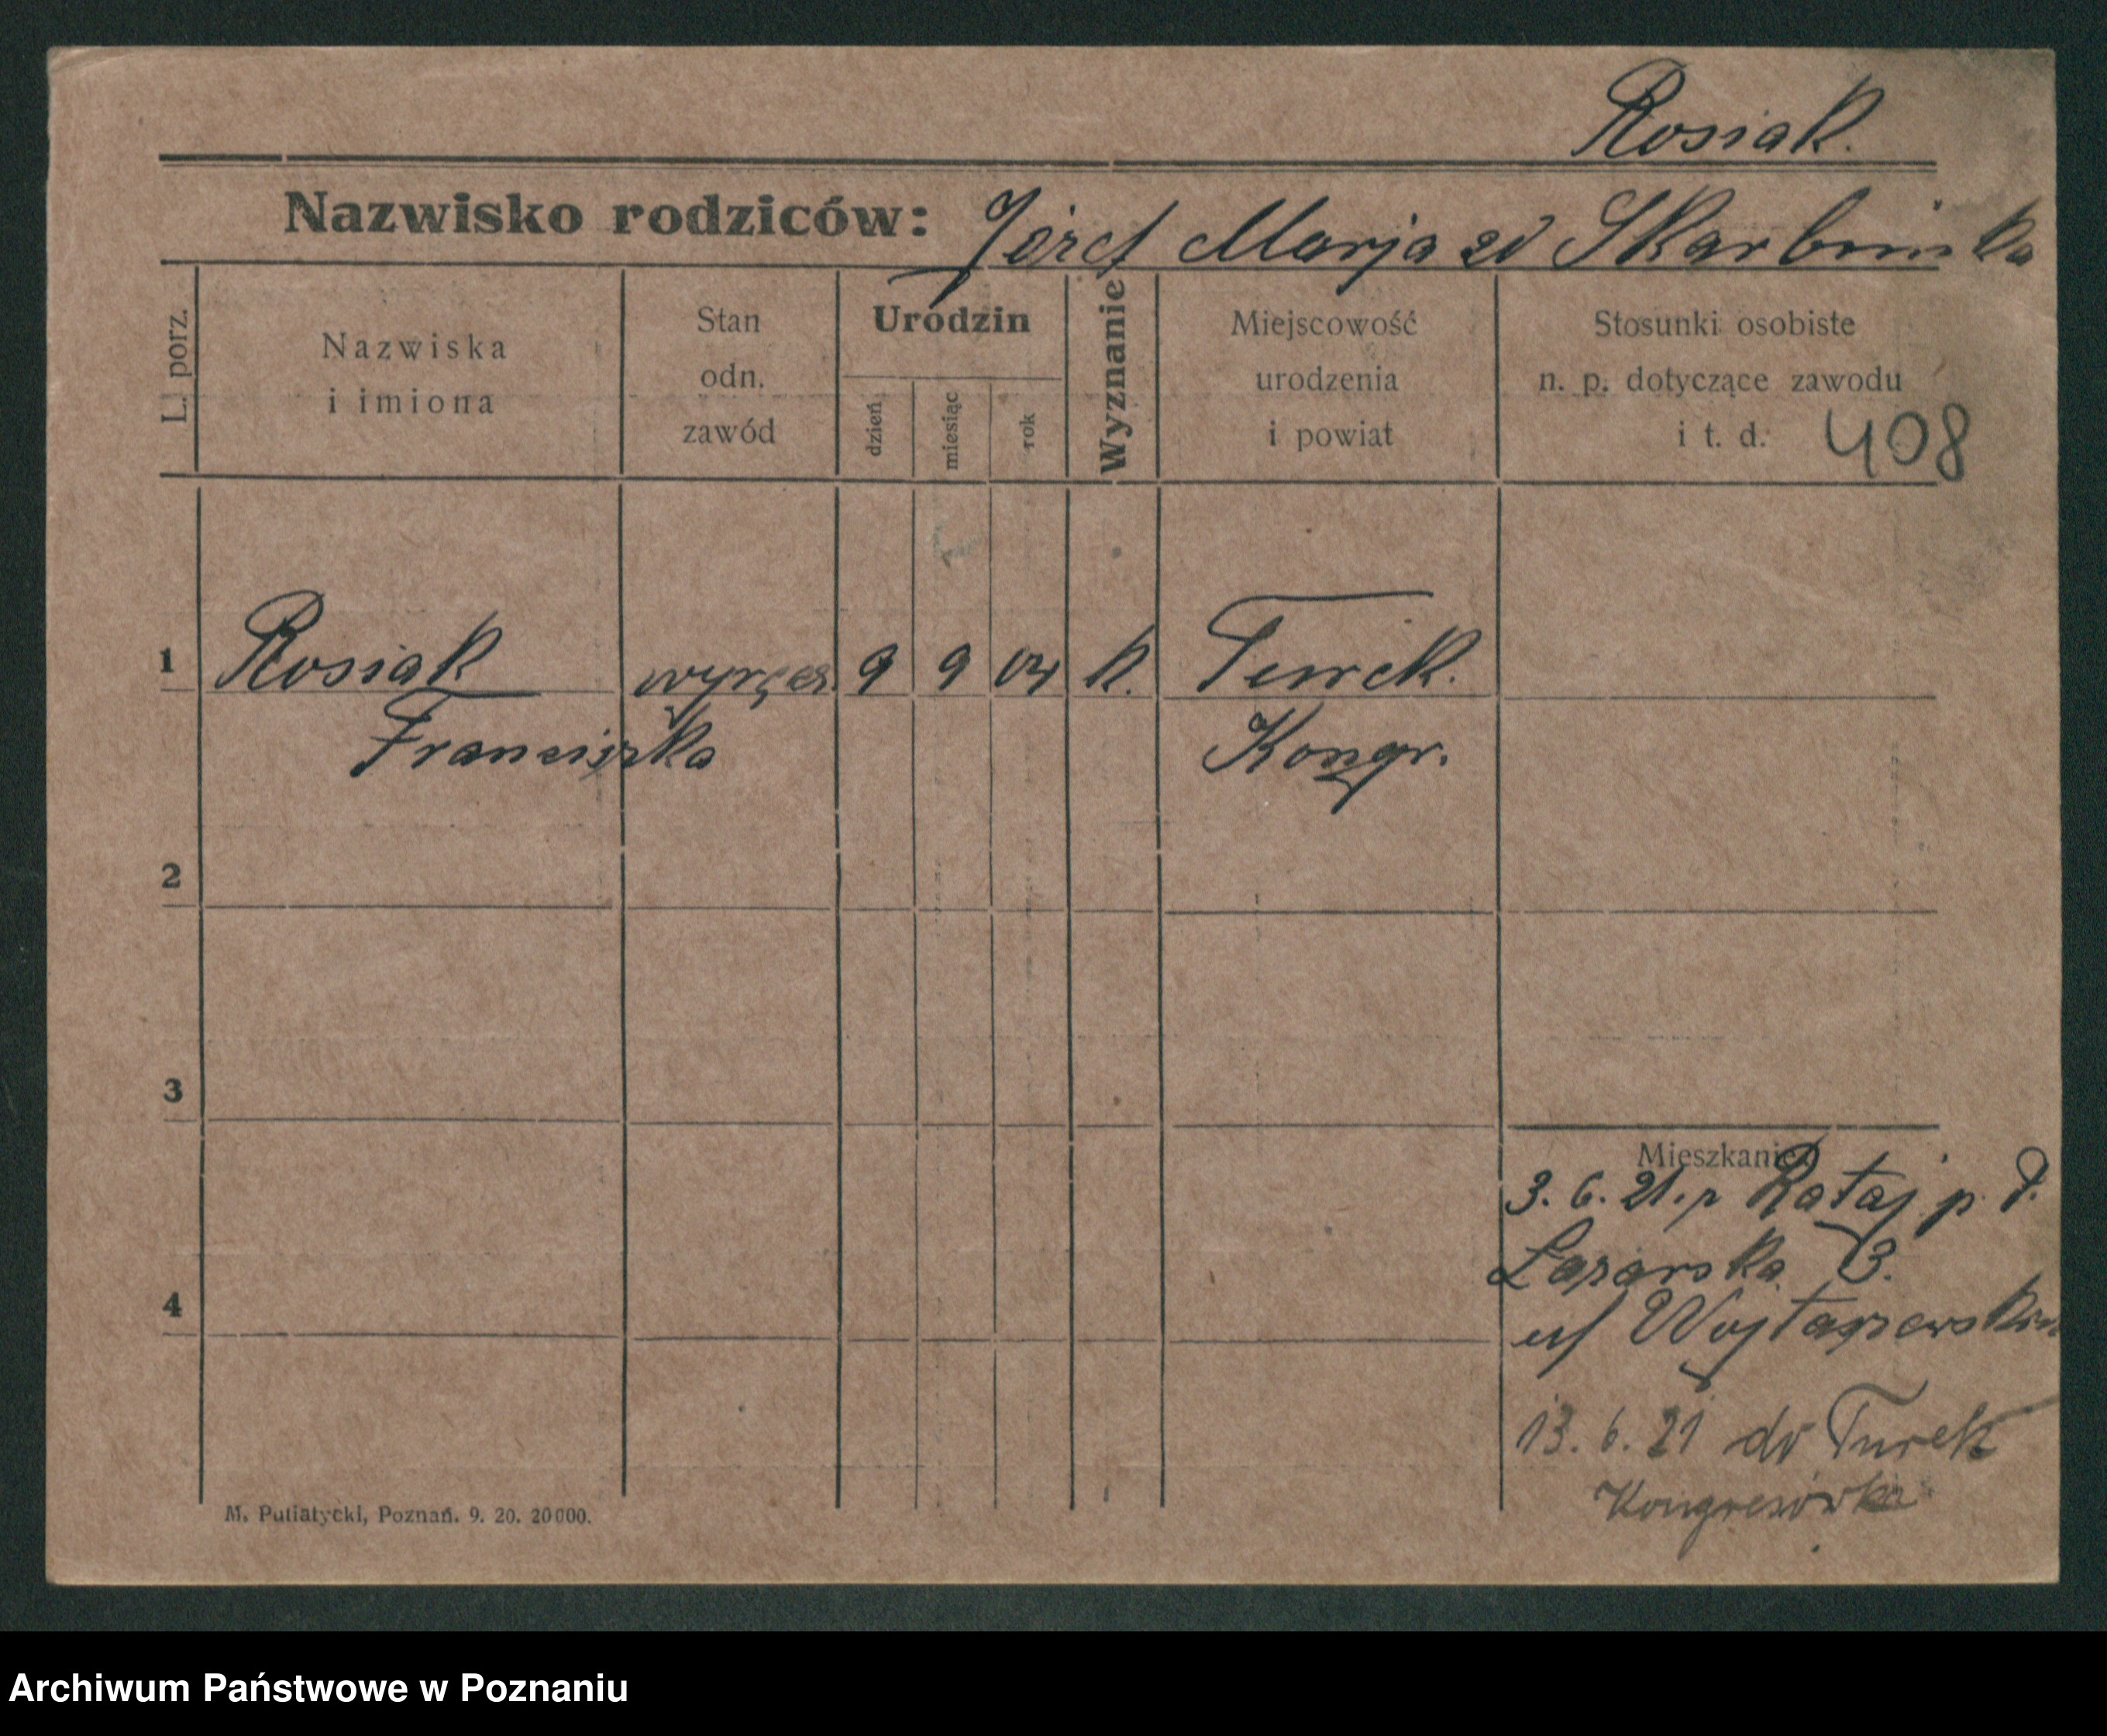 Rosiak.
Nazwisko rodziców: Józef Marja zd Skarbinska
L. porz.
Nazwiska
i imiona
Stan
odn.
zawód
Urodzin
dzień
miesiąc
rok
Wyznanie
Miejscowość
urodzenia
i powiat
Stosunki osobiste
n. p. dotyczące zawodu
i t. d. 408
1 Rosiak 9 9 04 k. Turek.
Franciszka Kongr.
2
3
Mieszkanie:
3. 6. 21. Rataj p.
Łazarska 3.
4
Wojtaszewskim
13. 6. 21 do Turek
Kongresówka
M. Putiatycki, Poznań. 9. 20. 20000.
Archiwum Państwowe w Poznaniu